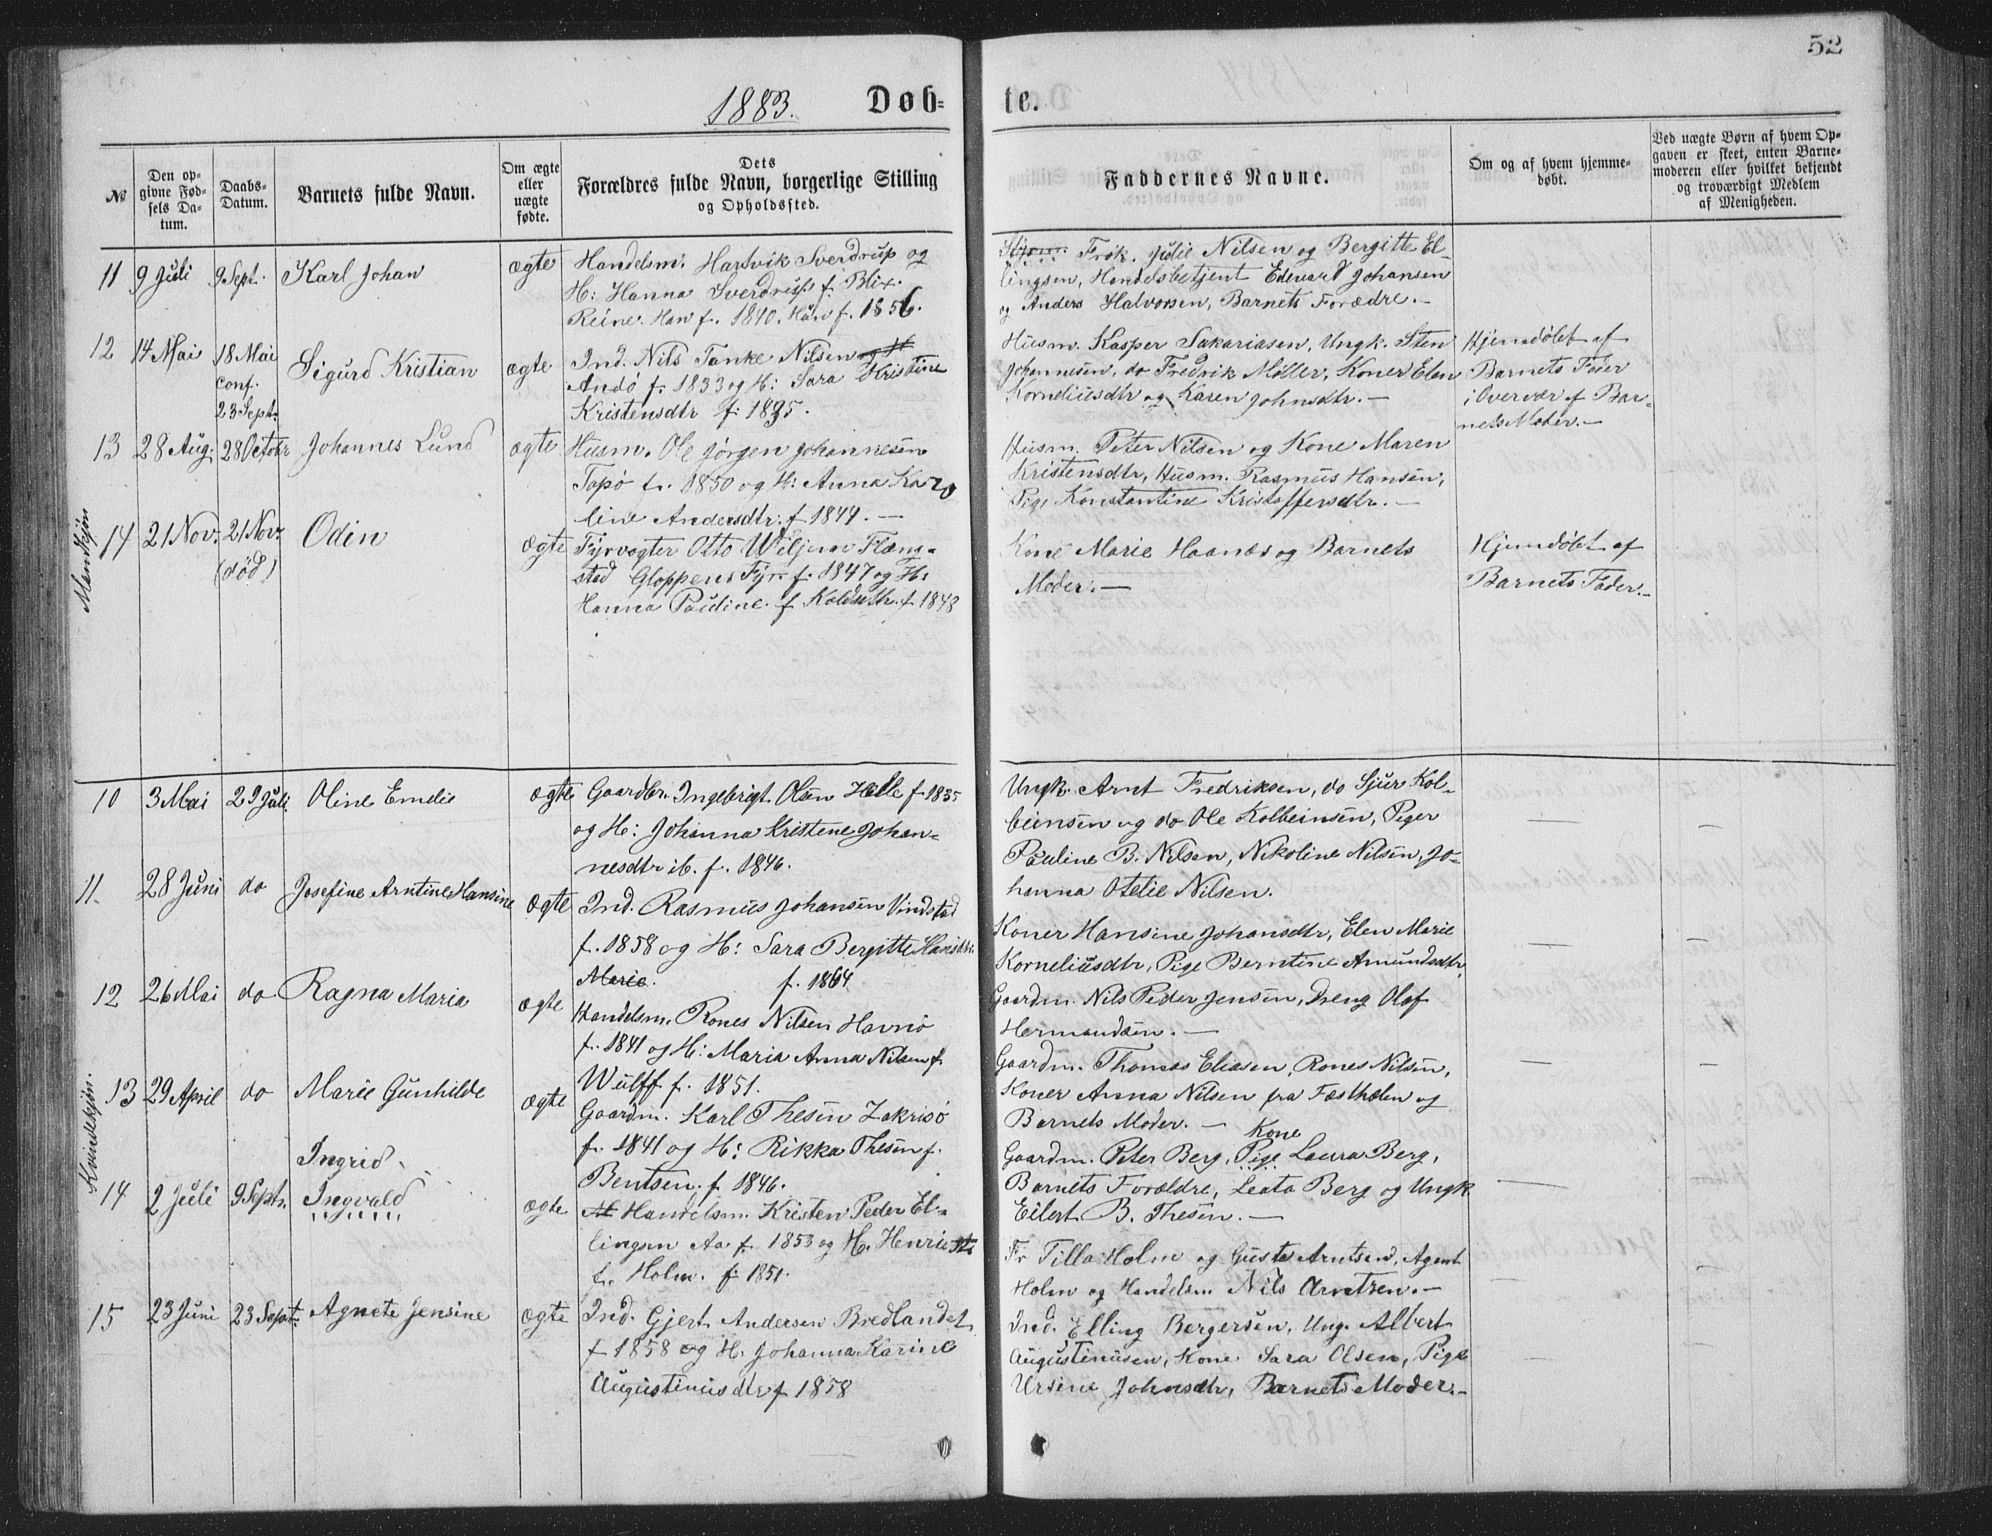 52
1883. Døb-
te.
№
Den op-
givne Fød-
sels Da-
tum.
Daabs-
Datum.
Barnets fulde Navn.
Om ægte
eller
uægte
fødte.
Dets
Forældres fulde Navn, borgerlige Stilling
og Opholdssted.
Faddernes Navne.
Om og af hvem hjemme-
døbt.
Ved uægte Børn af hvem Op-
gaven er skeet, enten Barne-
moderen eller hvilket bekjendt
og troværdigt Medlem
af Menigheden.
Mandkjøn
11 9 Juli 9 Sept. Karl Johan ægte
Handelsm. Hartvik Sverdrup og
H: Hanna Sverdrup f. Blix.
Reine. Han f. 1840. Hun f. 1856.
Frøk. Julie Nilsen og Bergitte El-
lingsen, Handelsbetjent Edevard Johansen
og Anders Halvorsen, Barnets Forædre.-
12 14 Mai 18 Mai
conf.
23 Sept.
Sigurd Kristian ægte
Ind. Nils Tanke Nilsen og H
Andø f. 1833 og H: Sara Kristine
Kristensdtr f. 1835.
Husm. Kasper Sakariasen, Ungk. Sten
Johannesen, do Fredrik Møller, Koner Elen
Korneliusdtr og Karen Johnsdtr.-
Hjemdøbt af
Barnets Fader
i Overvær af Bar-
nets Moder.-
13 28 Aug. 28 Octobr Johannes Lund ægte
Husm. Ole Jørgen Johannesen
Tapø f. 1850 og H: Anna Karo
line Andersdtr. f 1849.-
Husm. Peter Nilsen og Kone Maren
Kristensdtr, Husm. Rasmus Hansen,
Pige Konstantine Kristoffersdtr.-
14 21 Nov. 21 Nov.
(død)
Odin ægte
Fyrvogter Otto Wiljum Flæng-
stad Gloppens Fyr f. 1847 og H:
Hanna Pauline f. Koldseth. f. 1848
Kone Marie Haanæs og Barnets
Moder.-
Hjemdøbt af
Barnets Fader.-
Kvindekjøn.
10 3 Mai 29 Juli Oline Emelie ægte
Gaardbr. Ingebrigt Olsen Helle f. 1835
og H: Johanna Kristene Johan-
nesdtr ib. f. 1846.
Ungk. Arnt Fredriksen, do Sjur Kol-
beinsen og do Ole Kolbeinsen, Piger
Pauline B. Nilsen, Nikoline Nilsen, Jo-
hanna Otelie Nilsen.
11. 28 Juni do Josefine Arntine Hansine ægte
Ind. Rasmus Johansen Vindstad
f. 1858 og H: Sara Bergitte Hansdtr.
Marie. f. 1864
Koner Hansine Johansdtr, Elen Marie
Korneliusdtr, Pige Berntine Amundsdtr,
Gaardm. Nils Peder Jensen, Dreng Olaf
Hermandsen.-
12 26 Mai do Ragna Maria ægte
Handelsm. Rones Nilsen Havnø
f. 1841 og H: Maria Anna Nilsen f.
Wulff f. 1851.
Gaardm. Thomas Eliasen, Rones Nilsen,
Koner Anna Nilsen fra Fæsthælen og
Barnets Moder.-
13 29 April do Marie Gunhilde ægte
Gaardm. Karl Thesen Zakrisø
f. 1841 og H: Rikka Thesen f.
Bentsen. f. 1846.
Kone
Gaardm. Peter Berg, Pige Laura Berg,
Barnets Forældre, Leata Berg og Ungk
Eilert B. Thesen.-
Ingrid.
14 2 Juli 9 Septr. Ingvald ægte
Handelsm. Kristen Peder El-
lingsen Aa f. 1853 og H. Henriette
f. Holm. f. 1851.
Fr Tilla Holm og Gusta Arntsen, Agent
Holm og Handelsm Nils Arntsen.-
15 23 Juni 23 Septr. Agnete Jensine ægte
Ind. Gjert Andersen Bredlandet
f 1858 og H. Johanna Karine
Augustinusdtr f 1858
Ind. Elling Bergersen, Ung. Albert
Augustinusen, Kone Sara Olsen, Pige
Ursine Johnsdtr, Barnets Moder.-